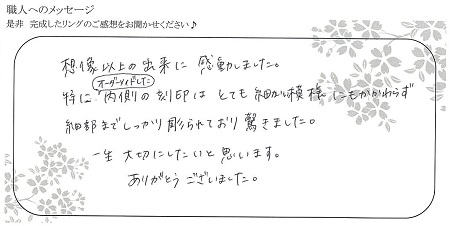 職人へのメッセージ
是非 完成したリングのご感想をお聞かせください♪
想像以上の出来に 感動しました。
オーダーメイドした
特に 内側の刻印は とても 細かい模様にもかかわらず
細部までしっかり彫られており 驚きました。
一生 大切にしたいと思います。
ありがとうございました。